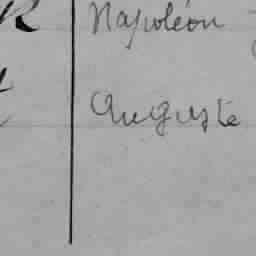 Napoléon
Auguste